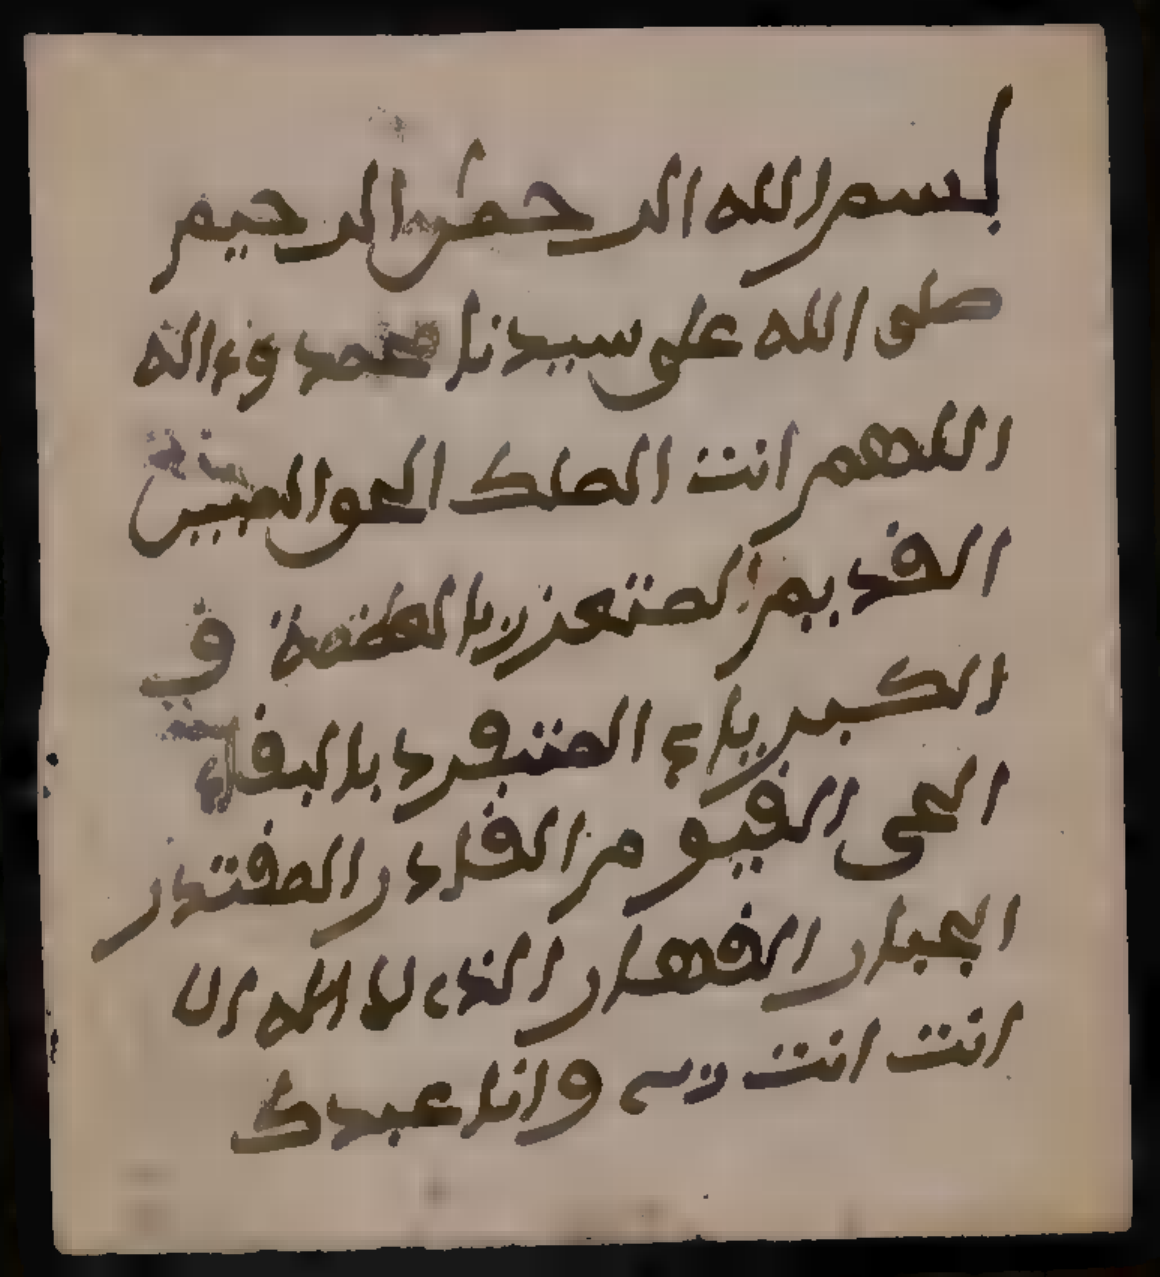 بسم الله الرحمن الرحيم
صلى الله على سيدنا محمد وءاله
اللهم انت الملك الحق المبين
القديم المتعزز بالعظمة و
الكبرياء المتفرد بالبقاء
الحي القيوم القادر المقتدر
الجبار القهار الذي لا اله الا
انت انت ربي وانا عبدك